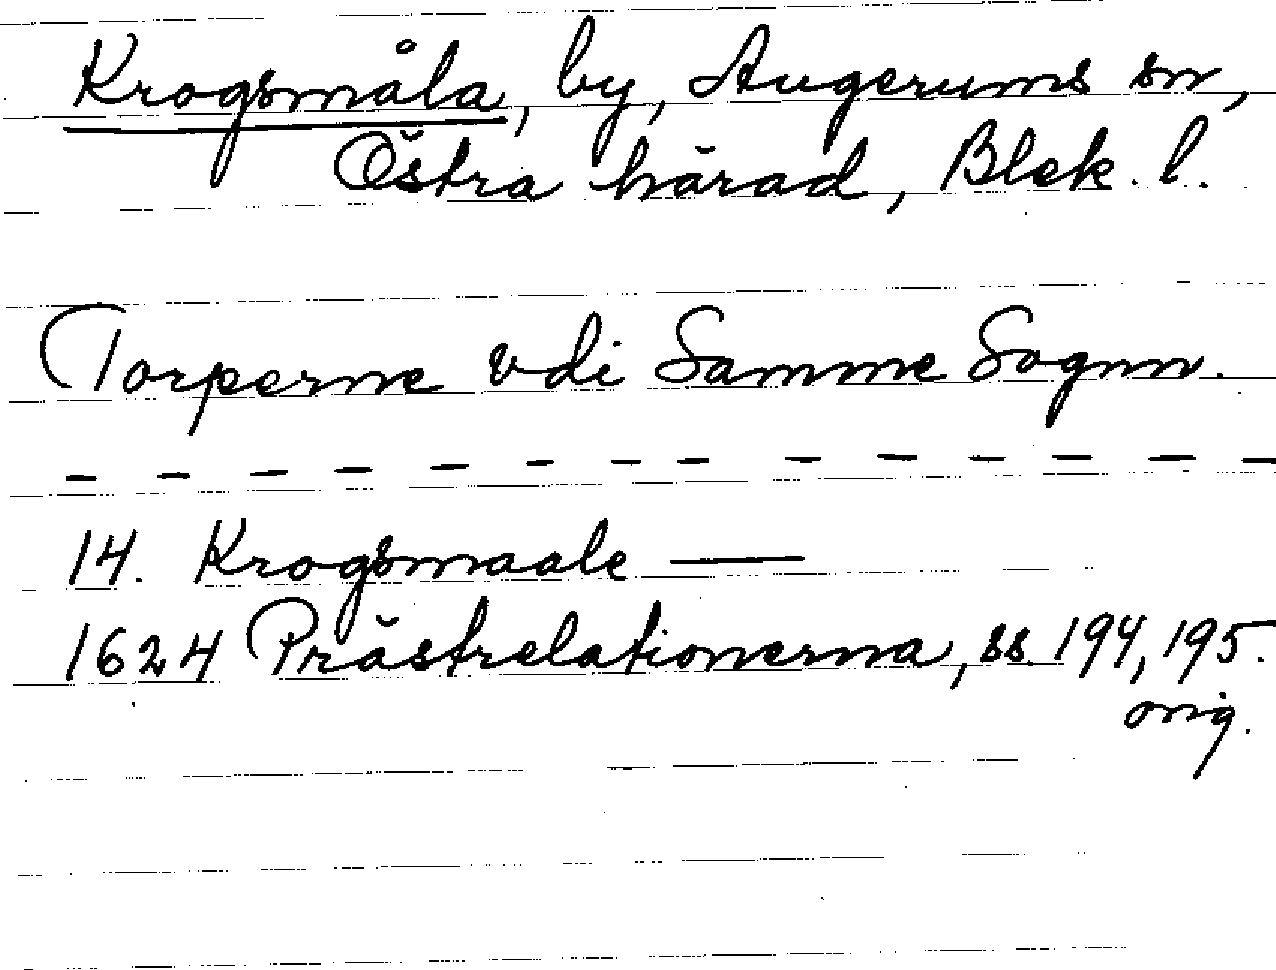 Krogsmåla, by, Augerums sn,
Östra härad, Blek. l.
Torperne vdi Samme Sognn.
- - - - - - - - - - - - - -
14. Krogsmaale —
1624 Prästrelationerna, ss. 194, 195.
orig.